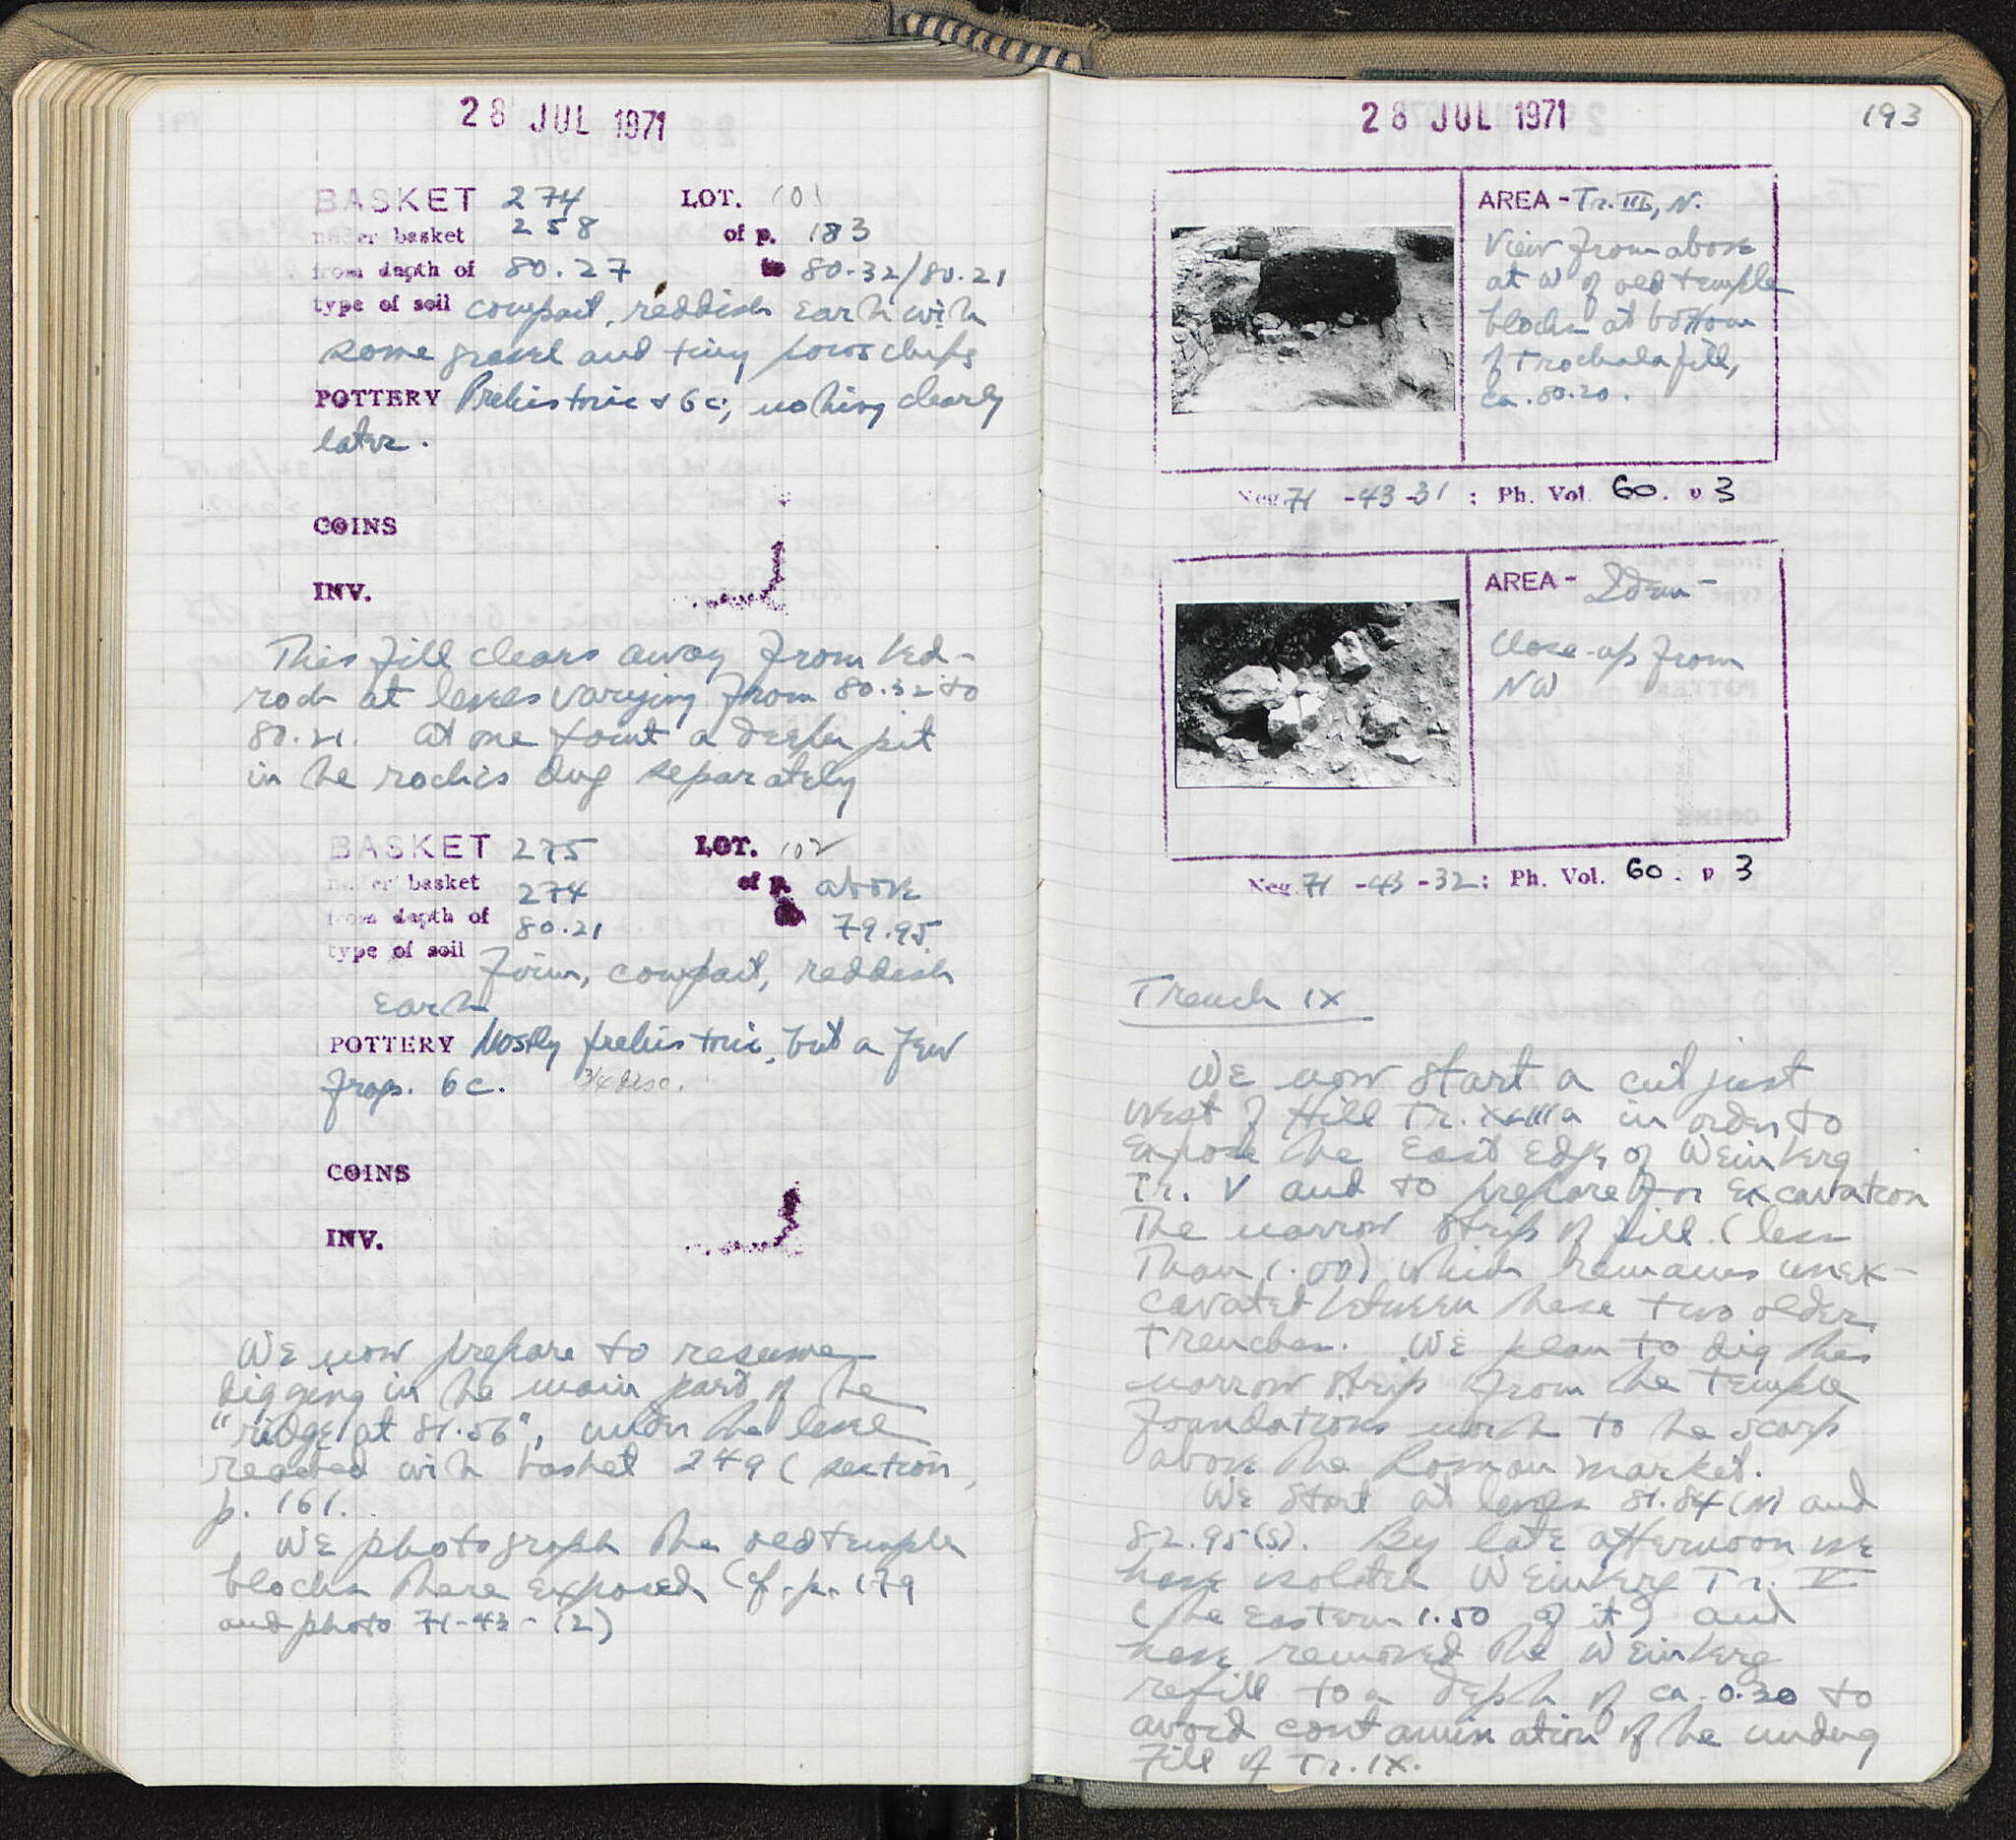 28 JUL 1971
BASKET 274 LOT. 101
under basket 258 of p. 183
from depth of 80.27 to 80.32/80.21
type of soil compact, reddish earth with
some gravel and tiny poros chips
POTTERY Prehistoric & 6c; nothing clearly
later.
COINS
INV.
This fill clears away from bed-
rock at levels varying from 80.32 to
80.21. At one point a deeper pit
in the rock is dug separately
BASKET 275 LOT. 102
under basket 274 of p. above
from depth of 80.21 79.95
type of soil
Firm, compact, reddish
earth
POTTERY Mostly prehistoric, but a few
frags. 6c. 3/4 disc.
COINS
INV.
We now prepare to resume
digging in the main part of the
"ridge at 81.56", under the level
reached with basket 249 (section,
p. 161.
We photograph the old temple
blocks there exposed (cf. p. 179
and photo 71-43-(2)
28 JUL 1971 193
AREA - Tr. III, N.
View from above
at W of old temple
blocks at bottom
of Trochala fill,
ca. 80.20.
Neg. 71 -43-31 ; Ph. Vol. 60. p 3
AREA - Idem -
Close-up from
NW
Neg. 71 -43 -32 : Ph. Vol. 60. p 3
Trench IX
We now start a cut just
west of Hill Tr. XLIIIa in order to
expose the East Edge of Weinberg
Tr. V and to prepare for excavation
The narrow strip of fill (less
than 1.00) which remains unex-
cavated between these two older
trenches. We plan to dig this
narrow strip from the temple
foundations north to the scarp
above the Roman market.
We start at levels 81.84 (N) and
82.95 (S). By late afternoon we
have isolated Weinberg Tr. V
(the Eastern 1.50 of it) and
have removed the Weinberg
refill to a depth of ca. 0.30 to
avoid contamination of the undug
fill of Tr. IX.